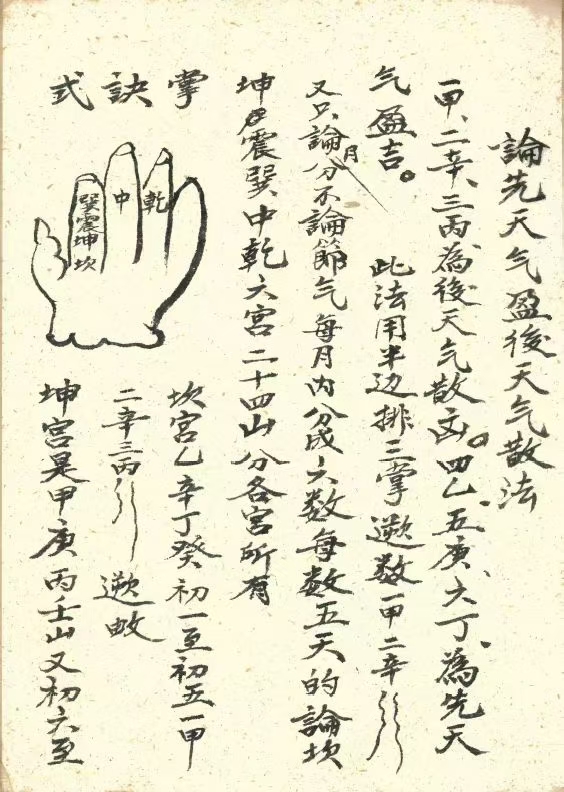 論先天气盈後天气散法
一甲、二辛、三丙為後天气散凶。四乙、五庚、六丁、為先天
气盈吉。 此法用半边排三掌遊数一甲二辛
又只論月分不論節气每月内分成六数每数五天的論坎
坤震巽中乾六宫二十四山分各宫所有
掌訣式
乾
中
巽震坤坎
坎宫乙辛丁癸初一至初五一甲
二辛三丙 遊
坤宫是甲庚丙壬山又初六至